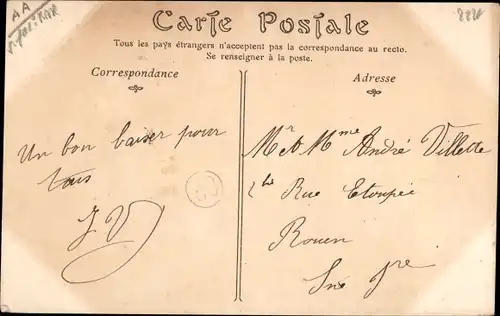 AA
Carte Postale
Tous les pays étrangers n'acceptent pas la correspondance au recto.
Se renseigner à la poste.
Correspondance
Adresse
Un bon baiser pour
tous
J. V
Mr & Mme André Villette
Rue Etoupée
Rouen
Sne Ire